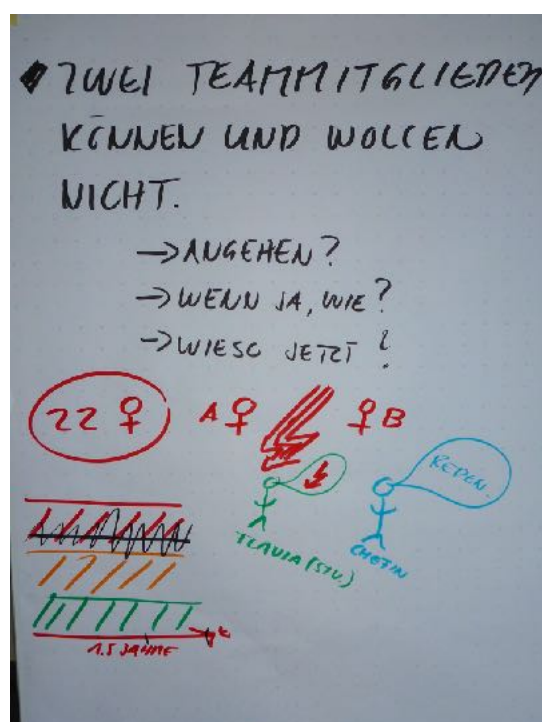 ZWEI TEAMMITGLIEDER
KÖNNEN UND WOLLEN
NICHT.
→ ANGEHEN?
→ WENN JA, WIE?
→ WIESO JETZT?
22 ♀ A ♀ ♀ B
REDEN.
CHEFIN
1.5 JAHRE t